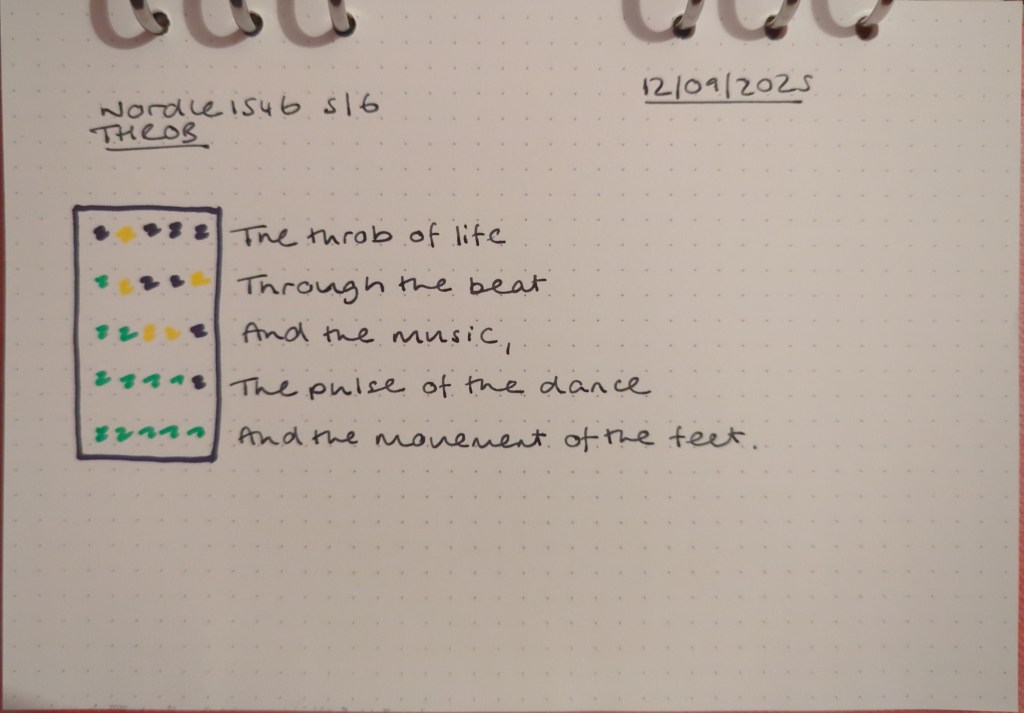 Wordle 1546 5/6
12/09/2025
THROB
The throb of life
Through the beat
And the music,
The pulse of the dance
And the movement of the feet.